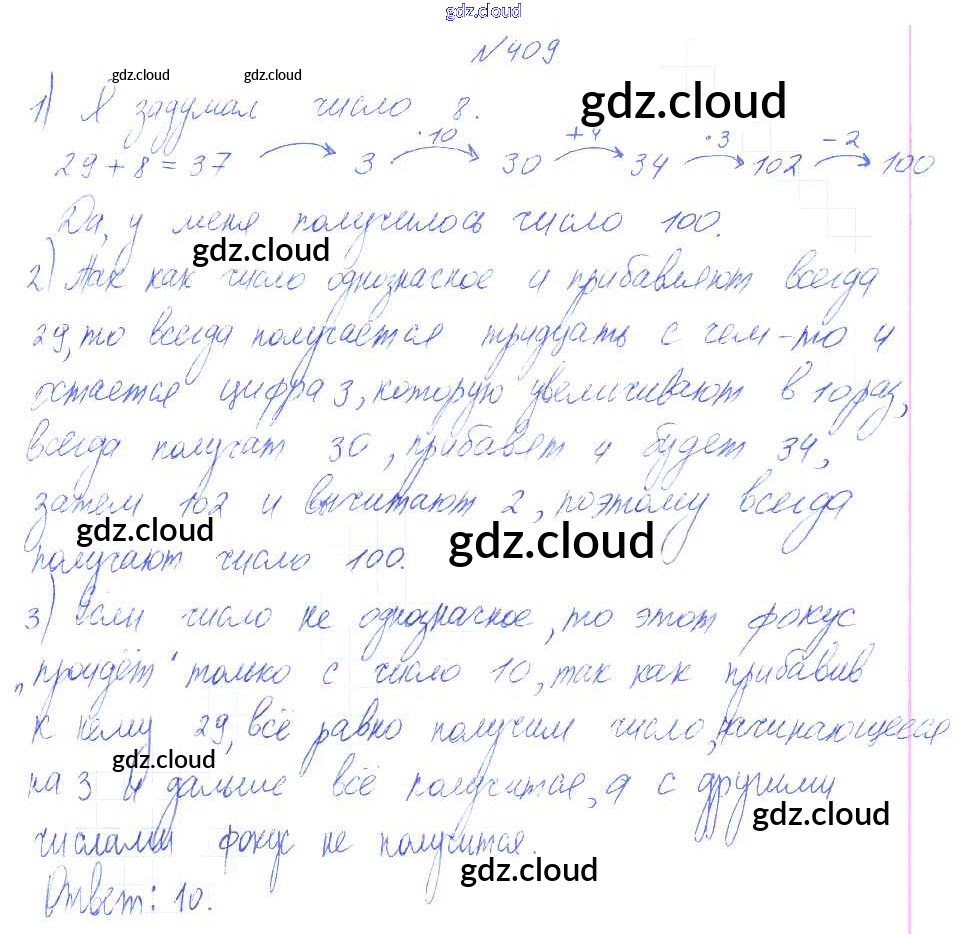 gdz.cloud
№ 409
gdz.cloud gdz.cloud gdz.cloud
1) Я задумал число 8.
29 + 8 = 37 → 3 ·10→ 30 +4→ 34 ·3→ 102 −2→ 100
Да, у меня получилось число 100.
gdz.cloud
2) Так как число однозначное и прибавляют всегда
29, то всегда получается тридцать с чем-то и
остается цифра 3, которую увеличивают в 10 раз,
всегда получат 30, прибавят 4 будет 34,
затем 102 и вычитают 2, поэтому всегда
gdz.cloud gdz.cloud
получают число 100.
3) Если число не однозначное, то этот фокус
„пройдёт“ только с число 10, так как прибавив
к нему 29, всё равно получим число, начинающееся
gdz.cloud
на 3 и дальше всё получится, а с другими
gdz.cloud
числами фокус не получится.
gdz.cloud
Ответ: 10.